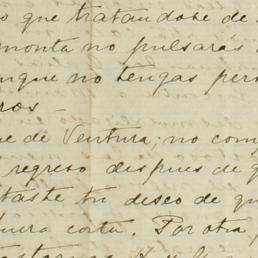 o que tratandose de
monta no pulsarás
unque no tengas per
ros -
ue de Ventura; no com
regreso despues de q
taste tu deseo de qu
uera corta. Por otra,